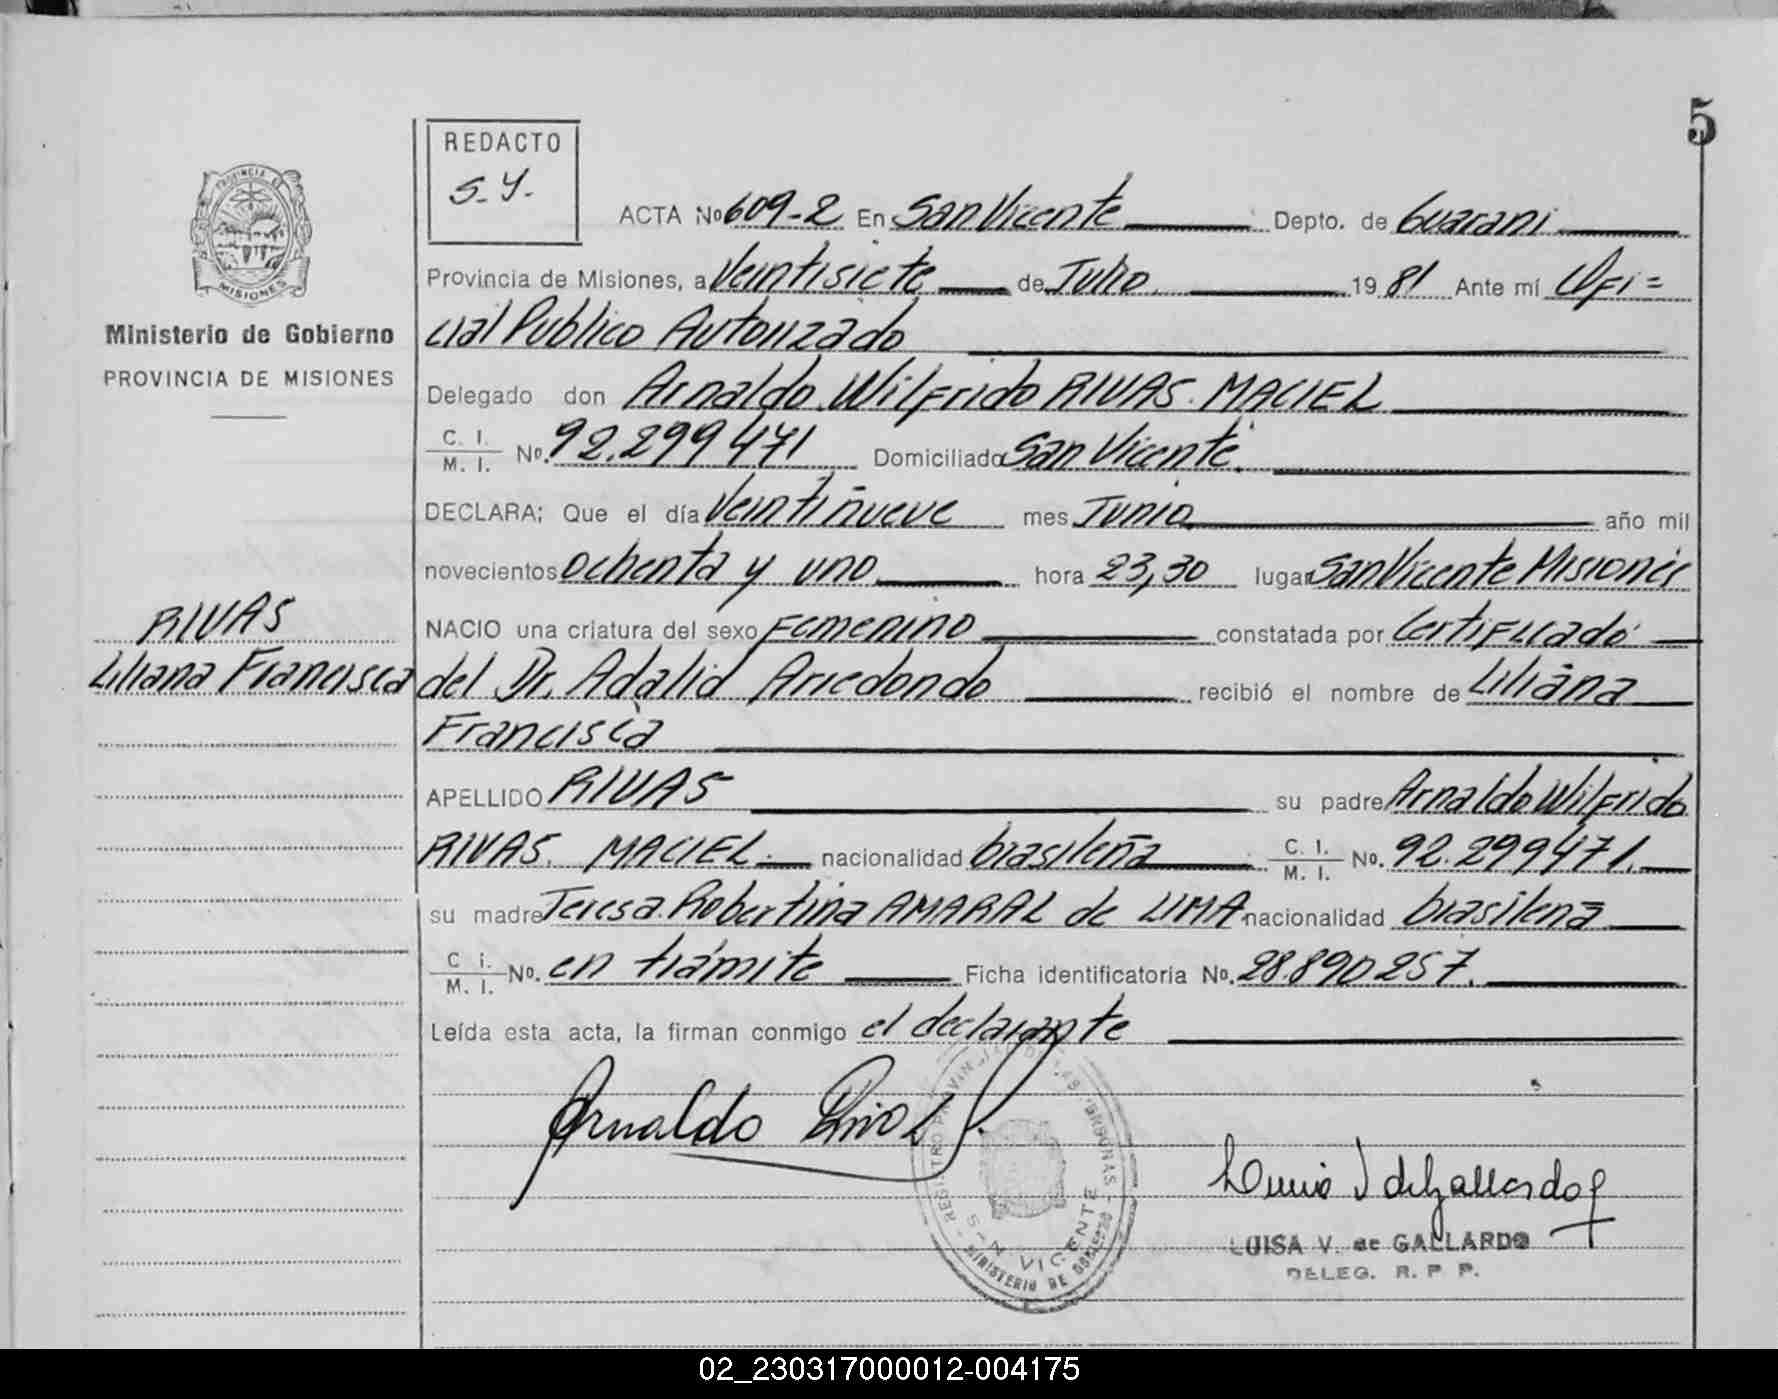 5
REDACTO
S.Y.
PROVINCIA DE
MISIONES
Ministerio de Gobierno
PROVINCIA DE MISIONES
ACTA Nº 609-2 En San Vicente Depto. de Guarani
Provincia de Misiones, a Veintisiete de Julio 19 81 Ante mí Ofi=
cial Publico Autorizado
Delegado don Arnaldo Wilfrido RIVAS MACIEL
C. I. M. I. Nº. 92.299471 Domiciliado San Vicente.
DECLARA; Que el día Veintinueve mes Junio año mil
novecientos Ochenta y uno hora 23,30 lugar San Vicente Misiones
NACIO una criatura del sexo Femenino constatada por Certificado
del Dr. Adalid Arredondo recibió el nombre de Liliana
Francisca
RIVAS
Liliana Francisca
APELLIDO RIVAS su padre Arnaldo Wilfrido
RIVAS. MACIEL. nacionalidad brasileña C. I. M. I. Nº. 92.299471.
su madre Teresa Robertina AMARAL de LIMA nacionalidad brasilena
C i. M. I. Nº. en trámite Ficha identificatoria Nº. 28.890257.
Leída esta acta, la firman conmigo el declarante
Arnaldo Rivas
REGISTRO PROVINCIAL DE LAS PERSONAS
SAN VICENTE
MINISTERIO DE GOBIERNO
LUISA V. de GALLARDO
DELEG. R. P. P.
02_230317000012-004175